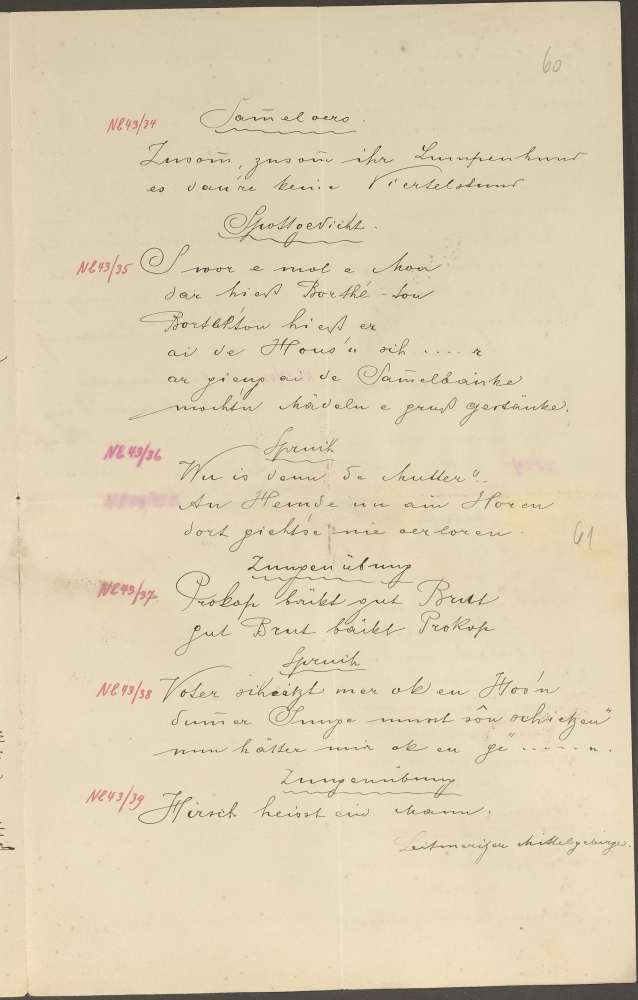 60
Nl 43/34 Sam̄elvers.
Zusom̄, zusom̄ ihr Lumpenhund
es dau're keine Viertelstund
Spottgedicht.
Nl 43/35 S woor e mol e Moo
dar hieß Borthé-ton
hieß er
ai de Hous'n sch .... r
ar gieng ai de Sam̄elbänke
mocht'n Mädeln e gruß gestänke.
Nl 43/36 Spruch
Wu is denn de Mutter"
An Hemde un ain Horen
dort giehts'e nie verloren.
61
Zungenübung
Nl 43/37 Prokop bäckt gut Brutt
gut Brut bäckt Prokop
Spruch
Nl 43/38 Voter schickt mer ok en Hos'n
dum̄er Junge musst sôn schietzen"
nun hätter mir ok en ge"......n.
Zungenübung
Nl 43/39 Hirsch heisst ein Mann.
Leitmeritzer Mittelgebirge.